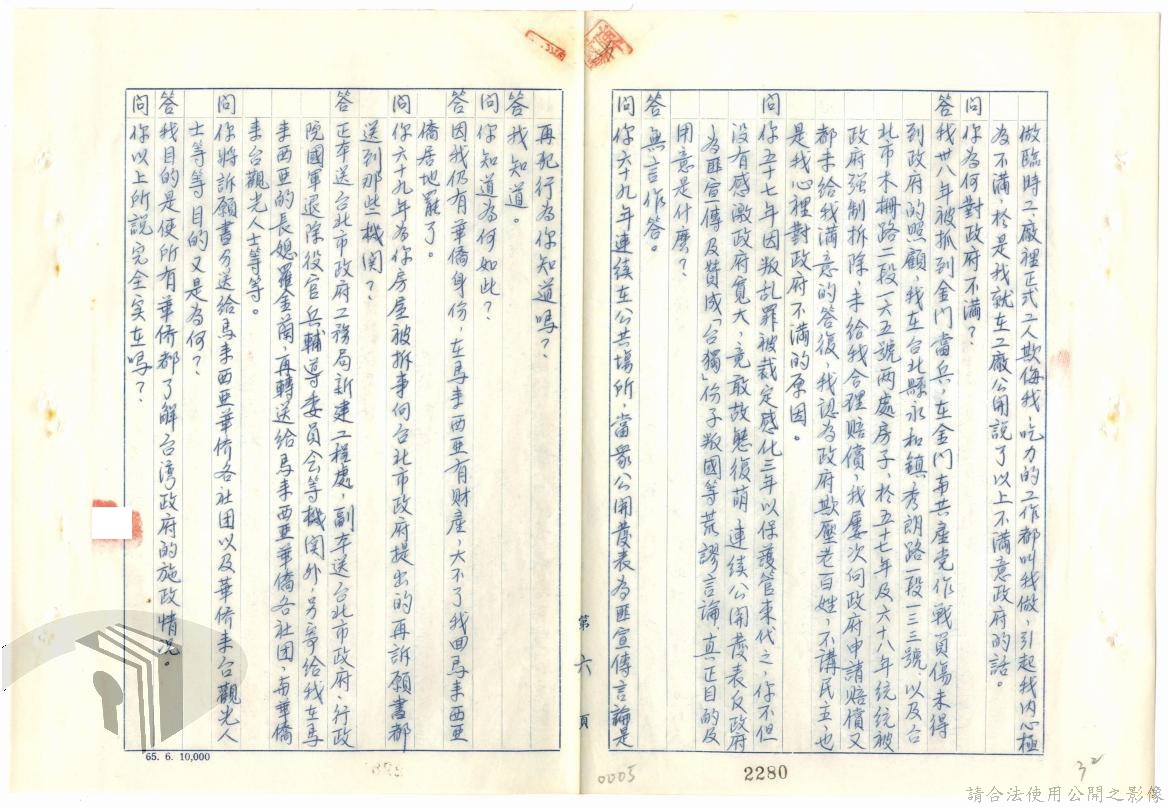 做臨時工、廠裡正式工人欺侮我、吃力的工作都叫我做，引起我內心極
為不滿，於是我就在工廠公開說了以上不滿意政府的話。
問你為何對政府不滿？
答我卅八年被抓到金門當兵，在金門與共產党作戰負傷未得
到政府的照顧，我在台北縣永和鎮秀朗路一段一三三號，以及台
北市木柵路二段一六五號两處房子，於五十七年及六十八年統統被
政府强制拆除，未給我合理賠償，我屢次向政府申請賠償又
都未給我滿意的答復，我認為政府欺壓老百姓，不講民主也
是我心裡對政府不滿的原因。
問你五十七年因叛乱罪被裁定感化三年以保護管束代之，你不但
沒有感激政府寬大，竟敢故態復萌連續公開發表反政府
為匪宣傳及賛成「台獨」份子叛國等荒謬言論，真正目的及
用意是什麼？
答無言作答。
問你六十九年連續在公共場所當衆公開發表為匪宣傳言論是
第六頁
再犯行為你知道嗎？
答我知道。
問你知道為何如此？
答因我仍有華僑身份，在馬来西亜有財產，大不了我回馬来西亜
僑居地罷了。
問你六十九年為你房屋被拆事向台北市政府提出的再訴願書都
送到那些機関？
答正本送台北市政府工務局新建工程處，副本送台北市政府、行政
院國軍退除役官兵輔導委員会等機関外，另寄給我在馬
来西亜的長媳羅金蘭，再轉送給馬来西亜華僑各社团，與華僑
来台觀光人士等等。
問你將訴願書分送給馬来西亜華侨各社团以及華侨来台觀光人
士等等目的又是為何？
答我目的是使所有華侨都了解台湾政府的施政情况。
問你以上所說完全实在嗎？
65. 6. 10,000
0005
2280
32
請合法使用公開之影像